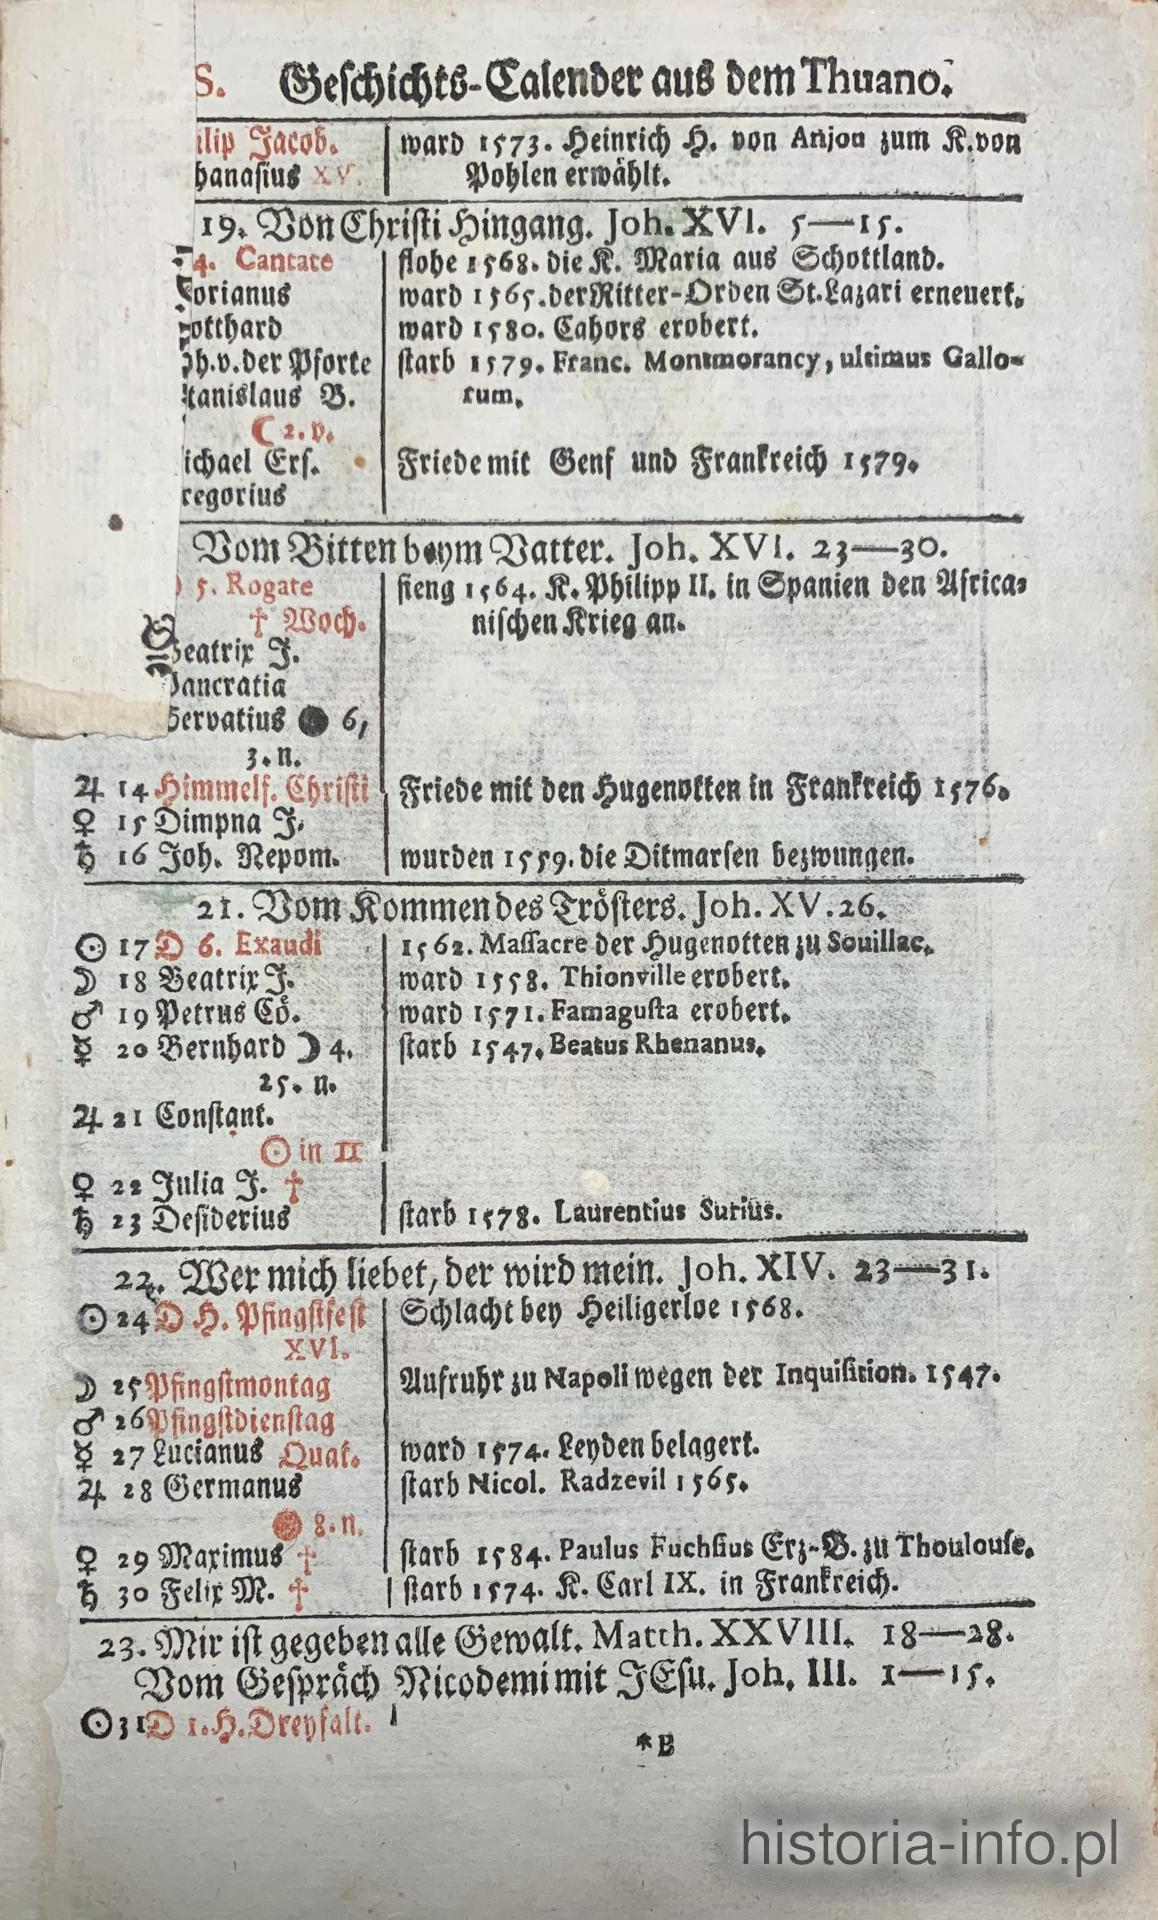 S. Geschichts-Calender aus dem Thuano.
ilip Jacob. ward 1573. Heinrich H. von Anjou zum K. von
hanasius XV. Pohlen erwählt.
19. Von Christi Hingang. Joh. XVI. 5—15.
4. Cantate flohe 1568. die K. Maria aus Schottland.
orianus ward 1565. der Ritter-Orden St. Lazari erneuert.
otthard ward 1580. Cahors erobert.
ph. v. der Pforte starb 1579. Franc. Montmorancy, ultimus Gallo-
tanislaus B. rum.
☾ 2. v.
ichael Ers. Friede mit Genf und Frankreich 1579.
regorius
Vom Bitten beym Vatter. Joh. XVI. 23—30.
5. Rogate fieng 1564. K. Philipp II. in Spanien den Africa-
† Woch. nischen Krieg an.
Beatrix J.
Pancratia
Servatius ● 6,
3. n.
♃ 14 Himmelf. Christi Friede mit den Hugenotten in Frankreich 1576.
♀ 15 Dimpna J.
♄ 16 Joh. Nepom. wurden 1559. die Ditmarsen bezwungen.
21. Vom Kommen des Trösters. Joh. XV. 26.
☉ 17 D 6. Exaudi 1562. Massacre der Hugenotten zu Souillac.
☽ 18 Beatrix J. ward 1558. Thionville erobert.
♂ 19 Petrus Cö. ward 1571. Famagusta erobert.
☿ 20 Bernhard ☽ 4. starb 1547. Beatus Rhenanus.
25. n.
♃ 21 Constant.
☉ in II
♀ 22 Julia J. †
♄ 23 Desiderius starb 1578. Laurentius Surius.
22. Wer mich liebet, der wird mein. Joh. XIV. 23—31.
☉ 24 D H. Pfingstfest Schlacht bey Heiligerloe 1568.
XVI.
☽ 25 Pfingstmontag Aufruhr zu Napoli wegen der Inquisition. 1547.
♂ 26 Pfingstdienstag
☿ 27 Lucianus Quat. ward 1574. Leyden belagert.
♃ 28 Germanus starb Nicol. Radzevil 1565.
● 8. n.
♀ 29 Maximus † starb 1584. Paulus Fuchsius Erz-B. zu Thoulouse.
♄ 30 Felix M. † starb 1574. K. Carl IX. in Frankreich.
23. Mir ist gegeben alle Gewalt. Matth. XXVIII. 18—28.
Vom Gespräch Nicodemi mit JEsu. Joh. III. 1—15.
☉ 31 D 1. H. Dreyfalt.
*B
historia-info.pl